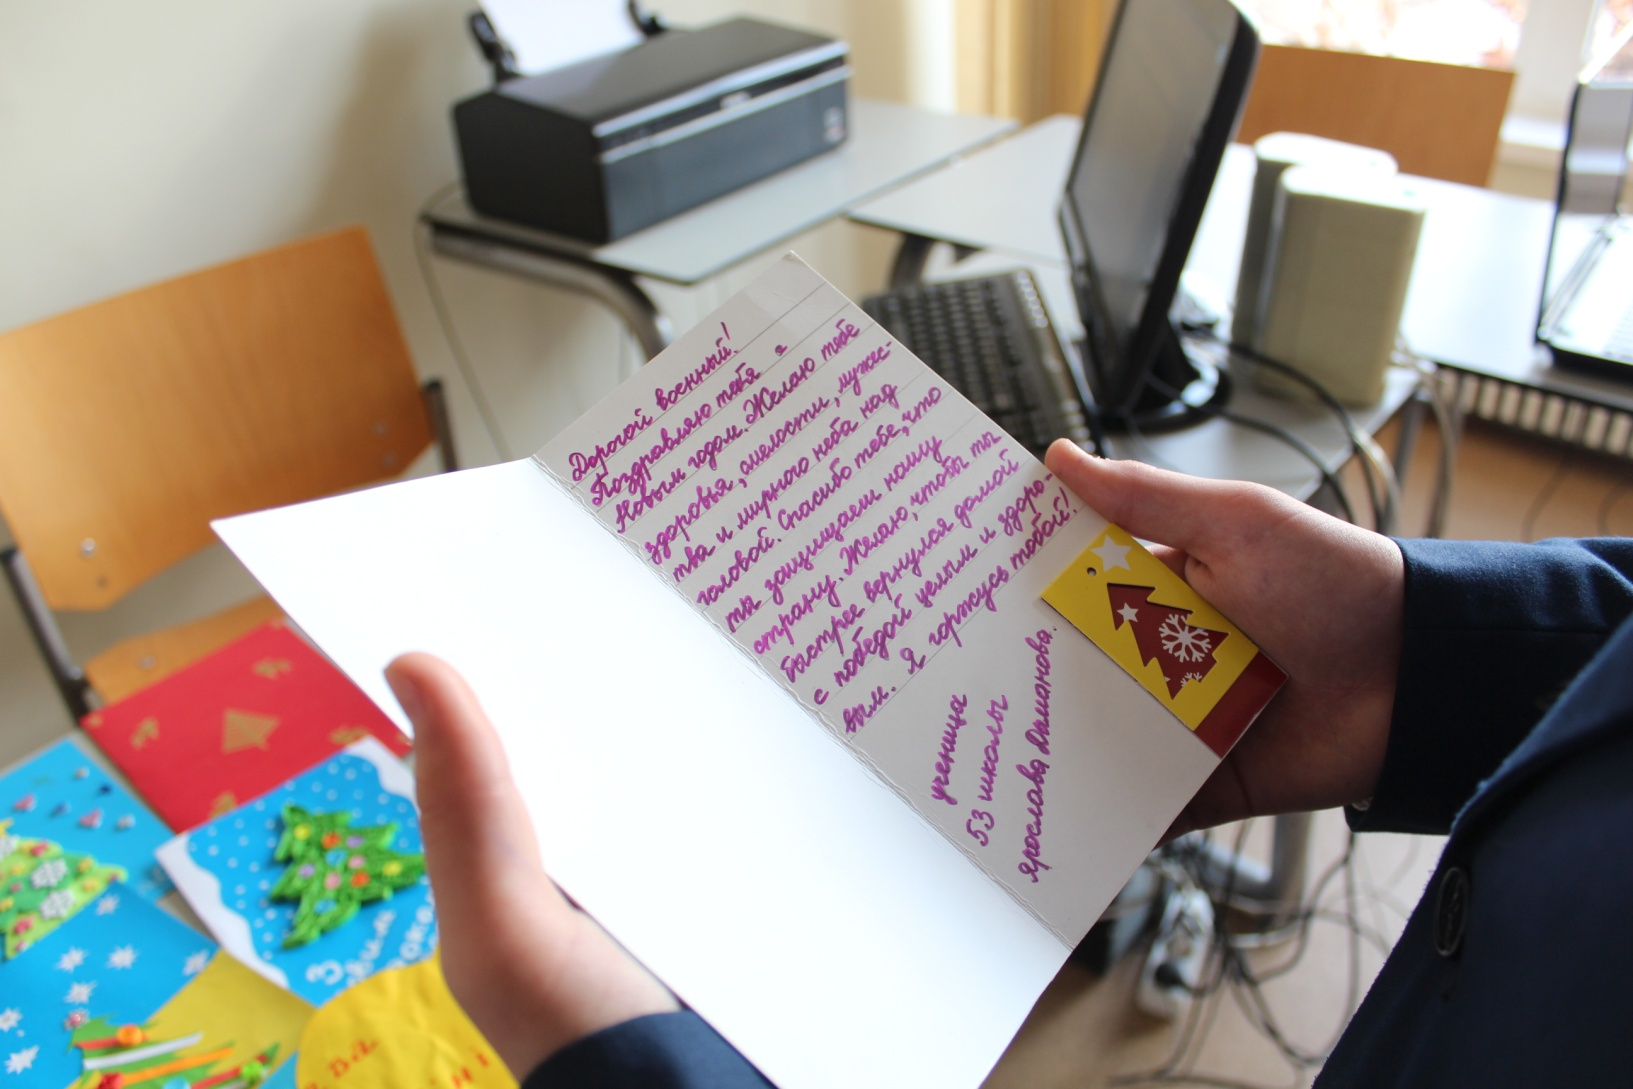 Дорогой военный!
Поздравляю тебя с
Новым годом. Желаю тебе
здоровья, смелости, мужес-
тва и мирного неба над
головой. Спасибо тебе, что
ты защищаеш нашу
страну. Желаю, чтобы ты
быстрее вернулся домой
с победой целым и здоро-
вым. Я горжусь тобой!
ученица
53 школы
Ярослава
З